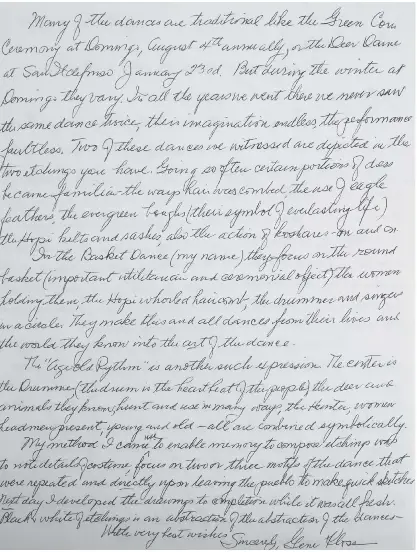 Many of the dances are traditional like the Green Corn
Ceremony at Domingo, August 4th annually, or the Deer Dance
at San Ildefonso January 23rd. But during the winter at
Domingo they vary. In all the years we went there we never saw
the same dance twice, their imagination endless, the performance
faultless. Two of these dances we witnessed are depicted in the
two etchings you have. Going so often certain portions of dress
became familiar - the ways hair was combed, the use of eagle
feathers, the evergreen boughs (their symbol of everlasting life)
the Hopi belts and sashes, also the action of koshares - on and on
In the Basket Dance (my name) they focus on the round
basket (important utilitarian and ceremonial object) the women
holding them, the Hopi whorled hair, the drummer and singer
in a circle. They make this and all dances from their lives and
the world they know into the art of the dance.
The "Ageold Rythm" is another such expression. The center is
the Drummer (the drum is the heartbeat of the people) the deer and
animals they know, hunt and use in many ways, the Hunter, women
headmen present, young and old - all are combined symbolically.
My method I came to enable memory to compose etchings was
to not detail costume, focus on two or three motifs of the dance that
were repeated and directly upon leaving the pueblo to make quick sketches
Next day I developed the drawings to completion while it was all fresh.
Black & white of etchings is an abstraction of the abstraction of the dances
With very best wishes
Sincerely, Gene Kloss